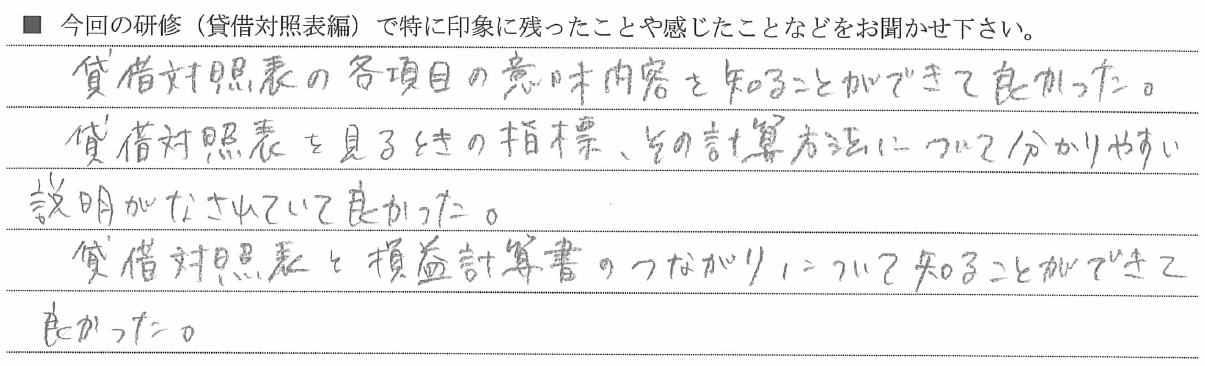 ■ 今回の研修（貸借対照表編）で特に印象に残ったことや感じたことなどをお聞かせ下さい。
貸借対照表の各項目の意味内容を知ることができて良かった。
貸借対照表を見るときの指標、その計算方法について分かりやすい
説明がなされていて良かった。
貸借対照表と損益計算書のつながりについて知ることができて
良かった。